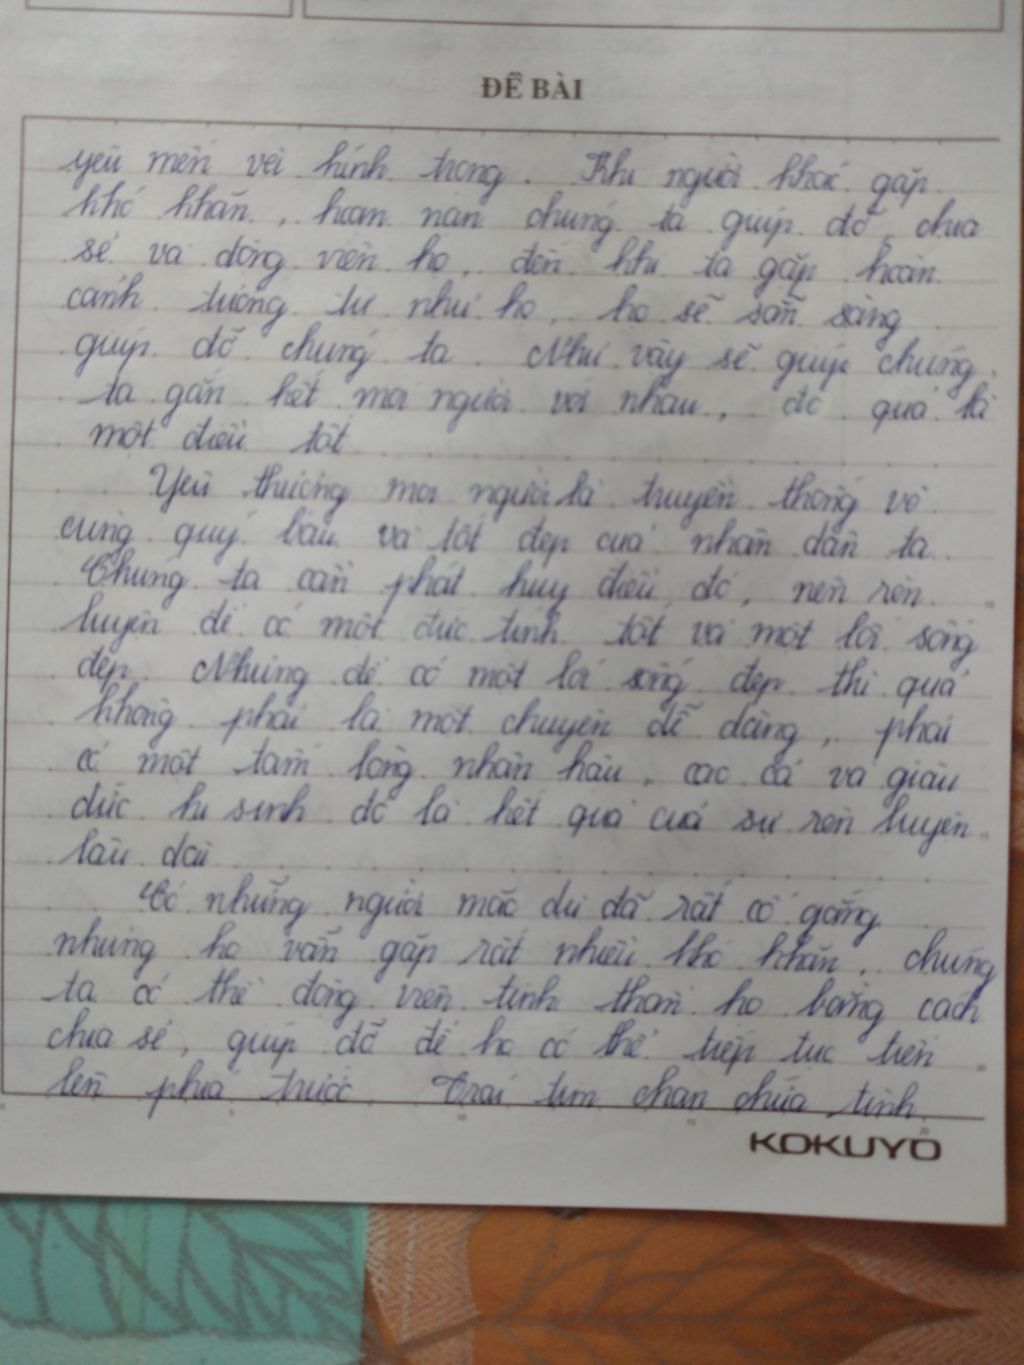 ĐỀ BÀI
yêu mến và kính trọng. Khi người khác gặp
khó khăn, hoạn nạn chúng ta giúp đỡ, chia
sẻ và động viên họ, đến khi ta gặp hoàn
cảnh tương tự như họ, họ sẽ sẵn sàng
giúp đỡ chúng ta. Như vậy sẽ giúp chúng
ta gắn kết mọi người với nhau, đó quả là
một điều tốt
Yêu thương mọi người là truyền thống vô
cùng quý báu và tốt đẹp của nhân dân ta.
Chúng ta cần phát huy điều đó, nên rèn
luyện để có một đức tính tốt và một lối sống
đẹp. Nhưng để có một lối sống đẹp thì quả
không phải là một chuyện dễ dàng, phải
có một tấm lòng nhân hậu, cao cả và giàu
đức hi sinh đó là kết quả của sự rèn luyện
lâu dài
Có những người mặc dù đã rất cố gắng
nhưng họ vẫn gặp rất nhiều khó khăn, chúng
ta có thể động viên tinh thần họ bằng cách
chia sẻ, giúp đỡ để họ có thể tiếp tục tiến
lên phía trước. Trái tim chan chứa tình
KOKUYO